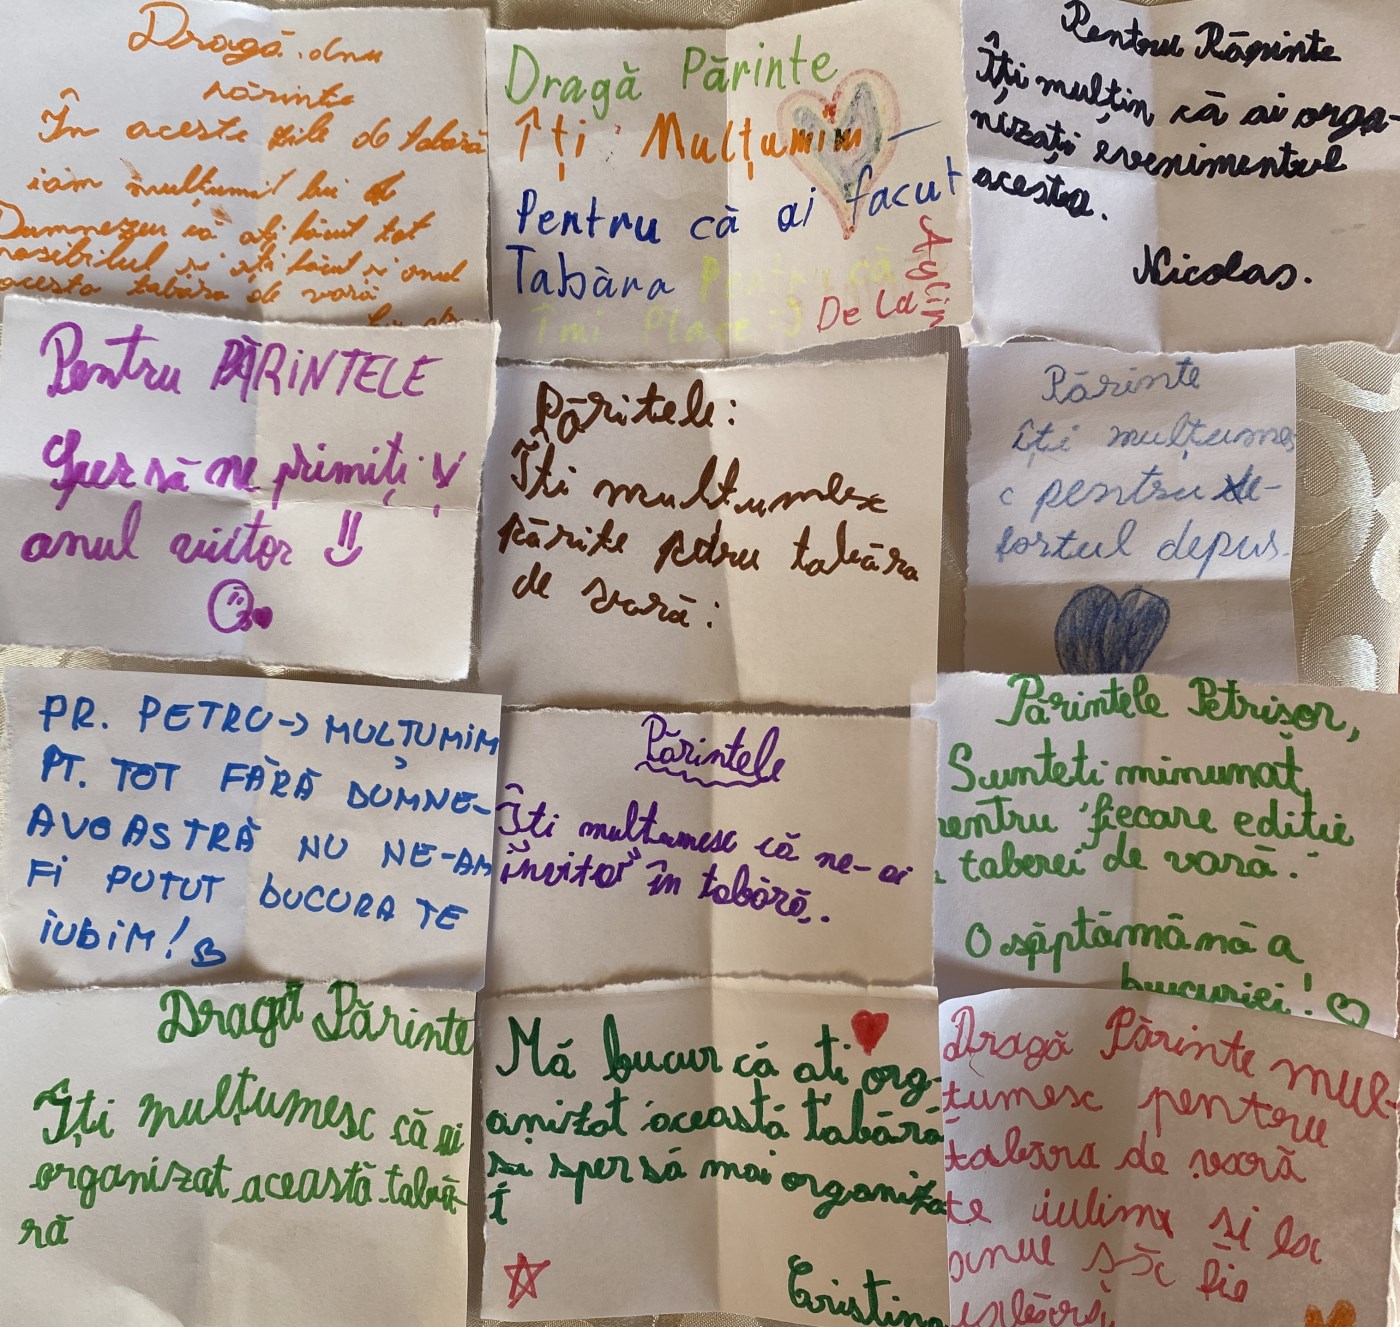 Dragă dnu
părinte
În aceste zile de tabără
iam mulțumit lui
Dumnezeu că ați făcut tot
posibilul și ați făcut și anul
acesta tabăra de vară
Dragă Părinte
Îți Mulțumim
Pentru că ai facut
Tabăra Pentru că
îmi Place :)
De la
Pentru Părinte
Îți mulțin că ai orga-
nizați evenimentul
acesta.
Nicolas.
Pentru PĂRINTELE
Sper să ne primiți și
anul viitor
Păritele:
Îti multumesc
părite petru tabăra
de vară:
Părinte
îți mulțumes
c pentru e-
fortul depus.
PR. PETRU-> MULȚUMIM
PT. TOT FĂRĂ DUMNE-
AVOASTRĂ NU NE-AM
FI PUTUT BUCURA TE
IUBIM!
Părintele
Îti multumesc că ne-ai
învitat în tabără.
Părintele Petrișor,
Sunteti minunat,
pentru fiecare editie
a taberei de vară.
O săptămână a
bucuriei!
Dragă Părinte
Îți mulțumesc că ai
organizat această tabă-
ră
Mă bucur că ati org-
anizat această tabără
si sper să mai organiza
ți
Cristina
Dragă Părinte mul-
țumesc pentru
tabăra de vară
te iubim și la
anul să fie